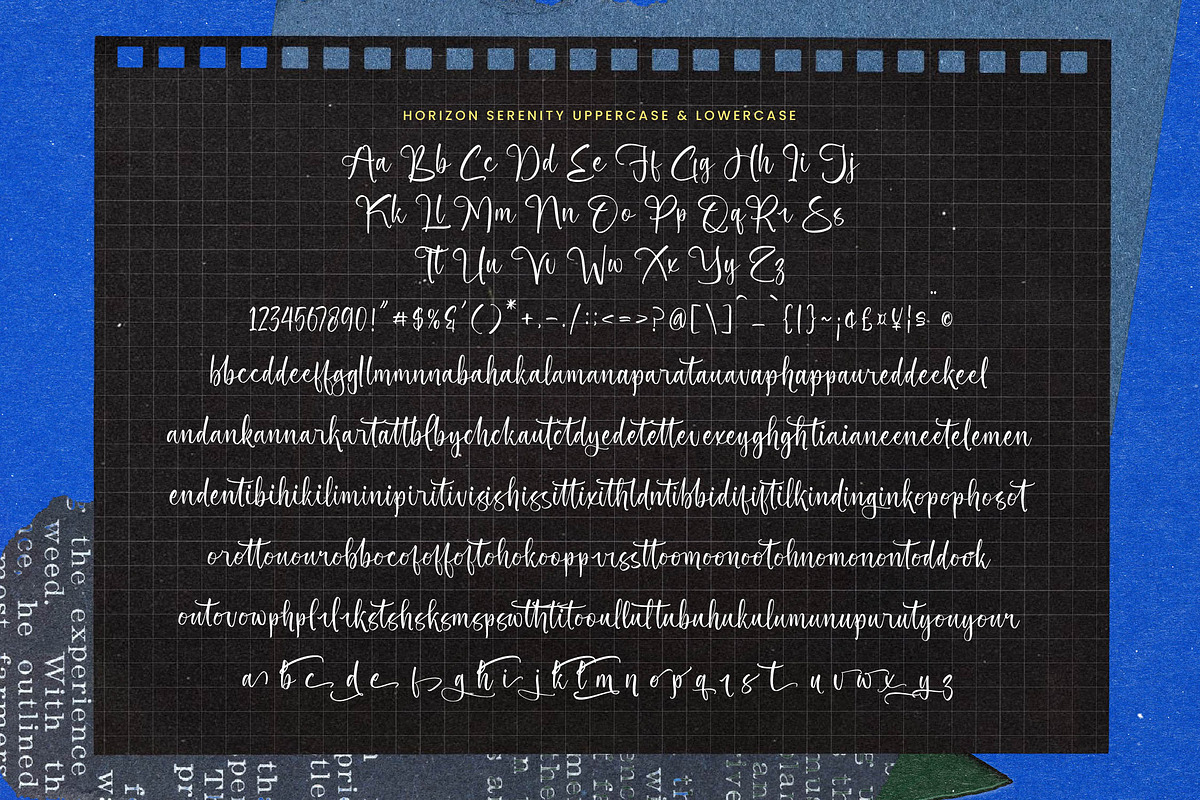 HORIZON SERENITY UPPERCASE & LOWERCASE
Aa Bb Cc Dd Ee Ff Gg Hh Ii Jj
Kk Ll Mm Nn Oo Pp Qq Rr Ss
Tt Uu Vv Ww Xx Yy Zz
1234567890!"#$%&'()*+,-./:;<=>?@[\]^_`{|}~¡¢£¤¥¦§¨©
bbccddeeffggllmmnnabahakalamanaparatauavaphappaureddeekeel
andankannarkartattblbychckautctdyedetettevexeyghghtiaianeeneetelemen
endentibihikiliminipiritivisishissittixithldntibbidififtilkindinginkopophosot
orottouourobbocofoffoftohokoopprrssttoomoonootohnomonontoddook
outovowphplrlrkstshsksmspswthtitooulluttubuhukulumunupurutyouyour
a b c d e f g h i j k l m n o p q r s t u v w x y z
the experience
weed. With th
ce, he outlined
most farmers